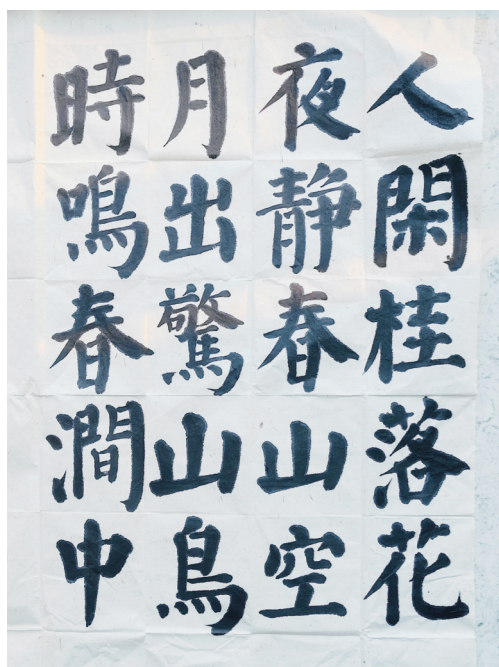 人閑桂落花
夜静春山空
月出驚山鳥
時鳴春澗中